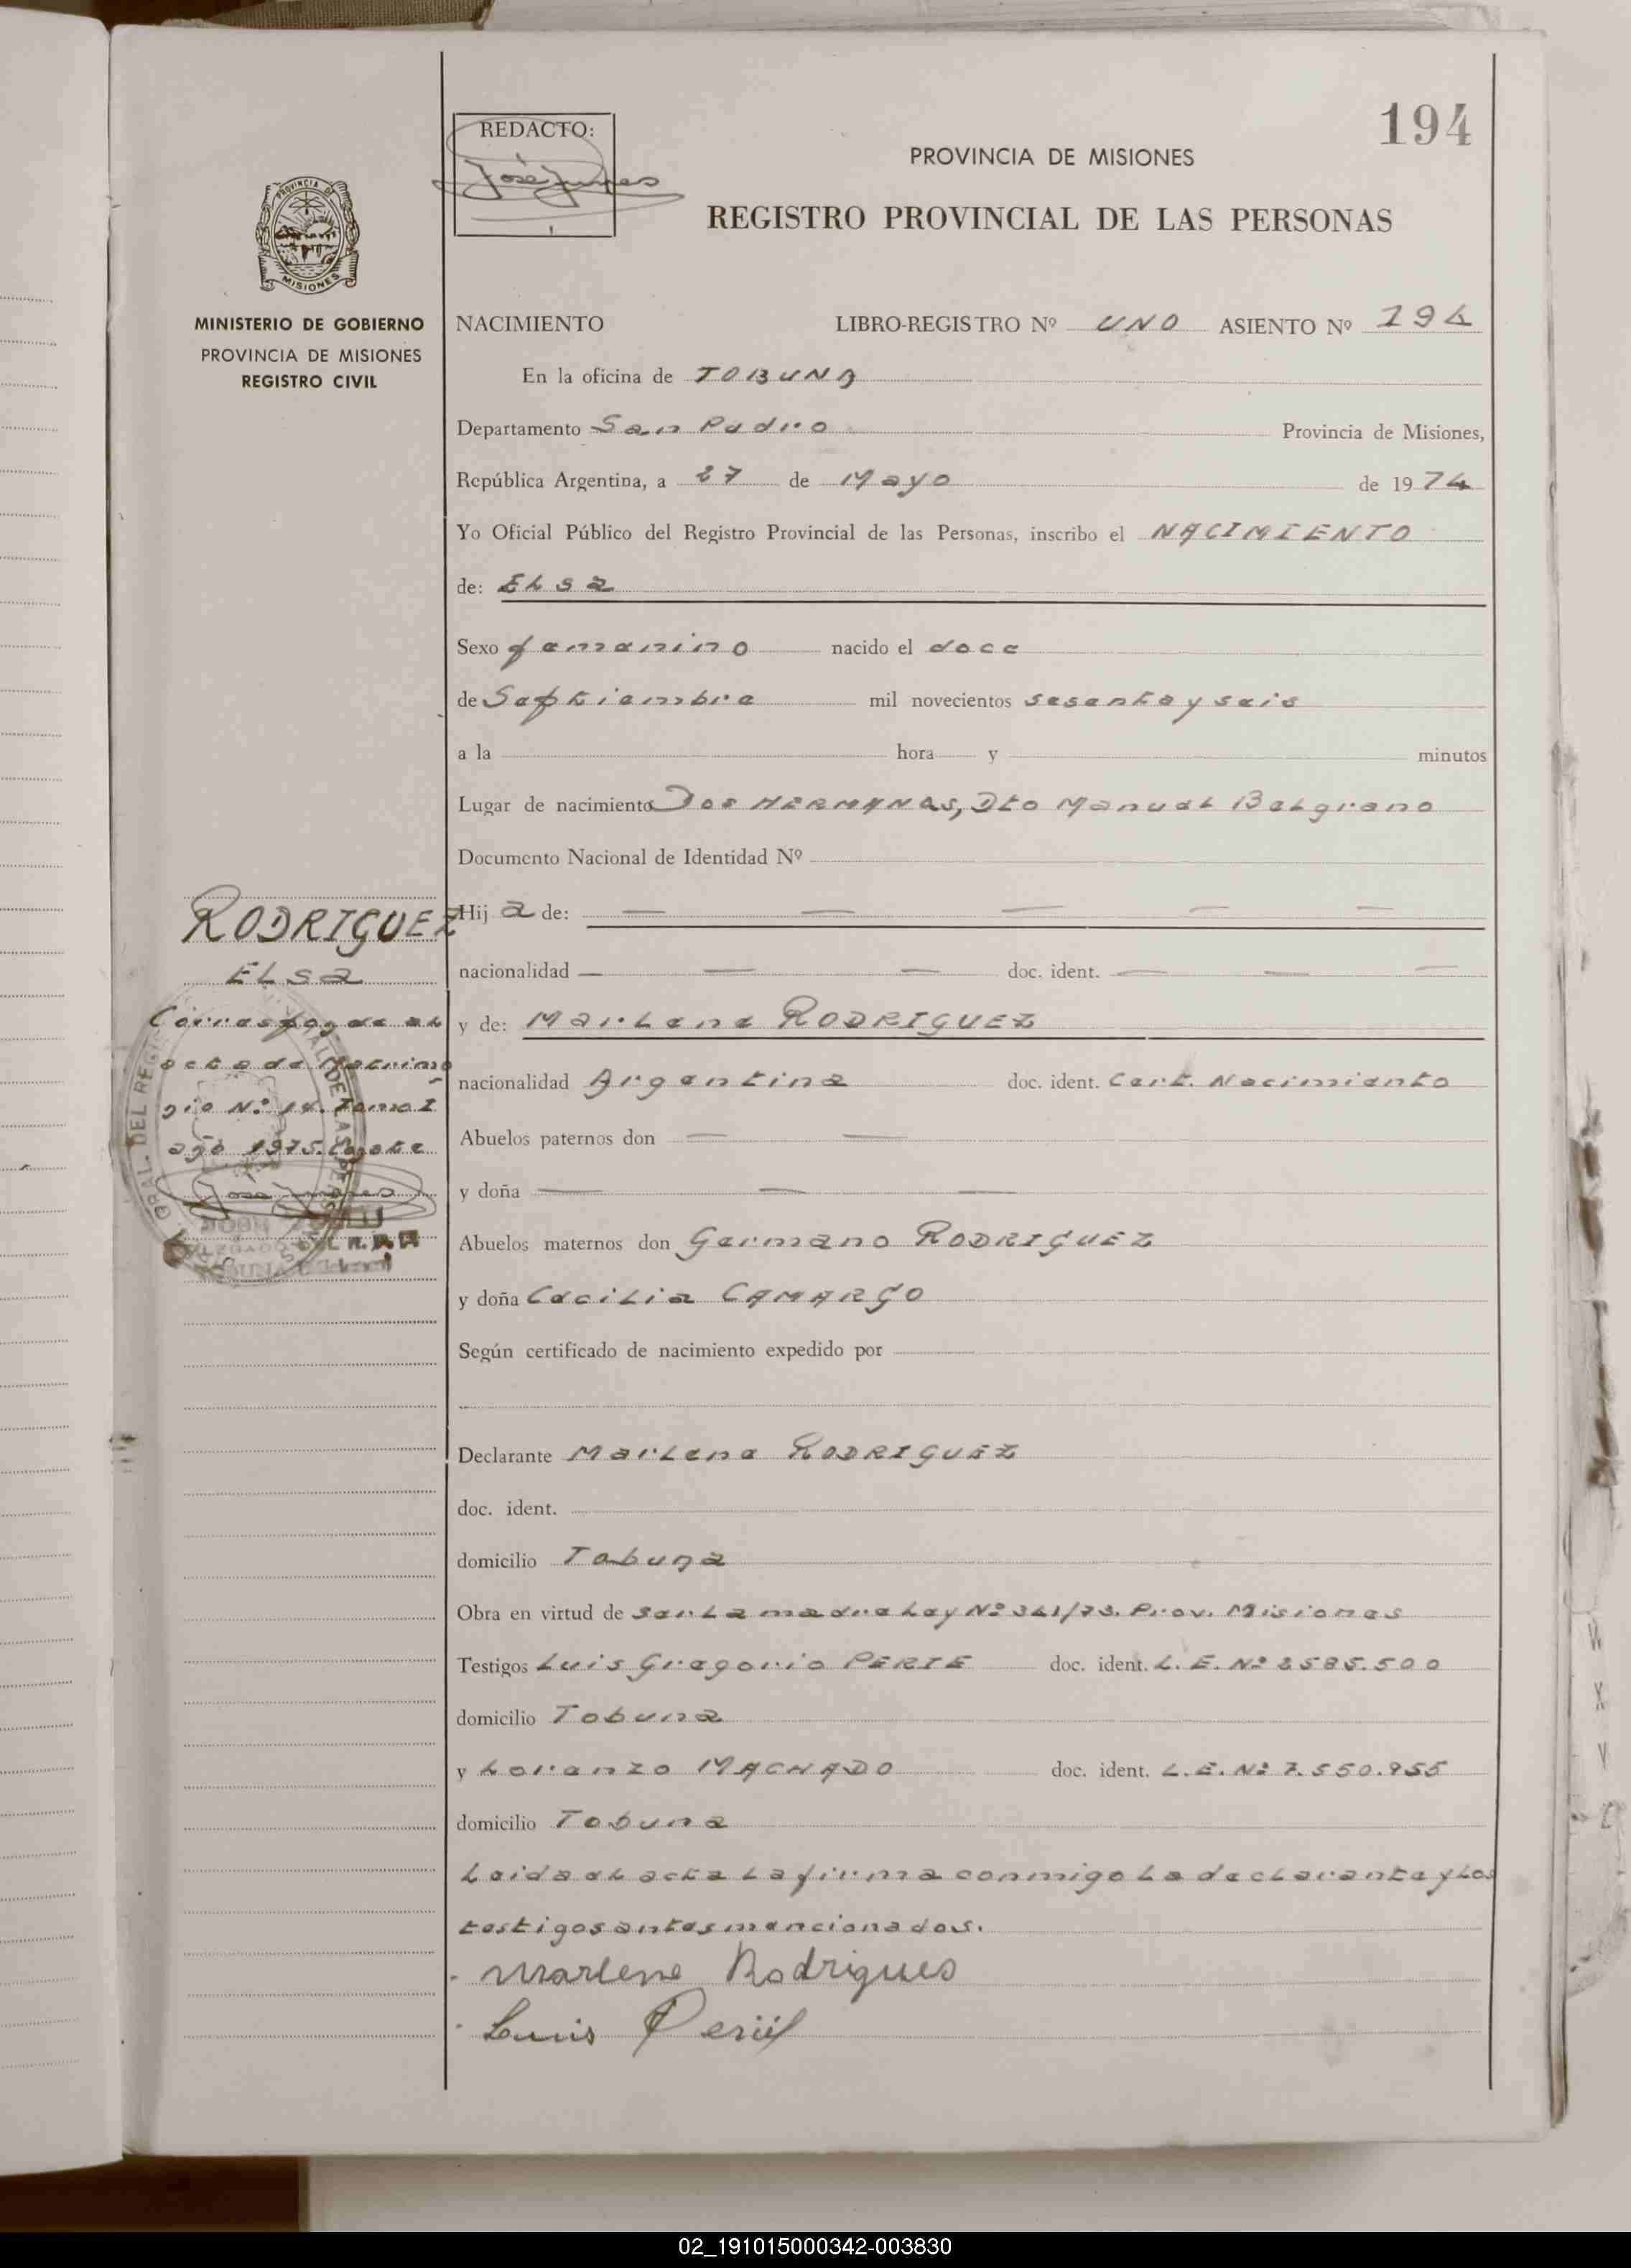 194
REDACTO:
PROVINCIA DE MISIONES
REGISTRO PROVINCIAL DE LAS PERSONAS
PROVINCIA DE
MISIONES
MINISTERIO DE GOBIERNO
PROVINCIA DE MISIONES
REGISTRO CIVIL
NACIMIENTO LIBRO-REGISTRO Nº UNO ASIENTO Nº 194
En la oficina de TOBUNA
Departamento San Pedro Provincia de Misiones,
República Argentina, a 27 de Mayo de 1974
Yo Oficial Público del Registro Provincial de las Personas, inscribo el NACIMIENTO
de: Elsa
Sexo femenino nacido el doce
de Septiembre mil novecientos sesenta y seis
a la hora y minutos
Lugar de nacimiento Dos HERMANAS, Dto Manuel Belgrano
Documento Nacional de Identidad Nº
Hij a de: — — — — —
nacionalidad — — — doc. ident. — — —
y de: Marlene RODRIGUEZ
nacionalidad Argentina doc. ident. Cert. Nacimiento
Abuelos paternos don — —
y doña — — —
Abuelos maternos don Germano RODRIGUEZ
y doña Cecilia CAMARGO
Según certificado de nacimiento expedido por
Declarante Marlene RODRIGUEZ
doc. ident.
domicilio Tobuna
Obra en virtud de ser la madre Ley Nº 341/73. Prov. Misiones
Testigos Luis Gregorio PERIE doc. ident. L. E. Nº 2585.500
domicilio Tobuna
y Lorenzo MACHADO doc. ident. L. E. Nº 7.550.955
domicilio Tobuna
Leida el acta la firma conmigo la declarante y los
testigos antes mencionados.
Marlene Rodrigues
Luis
RODRIGUEZ
Elsa
Corresponde al
acta de Matrimo
nio Nº 14. Tomo I
año 1975. Conste
02_191015000342-003830